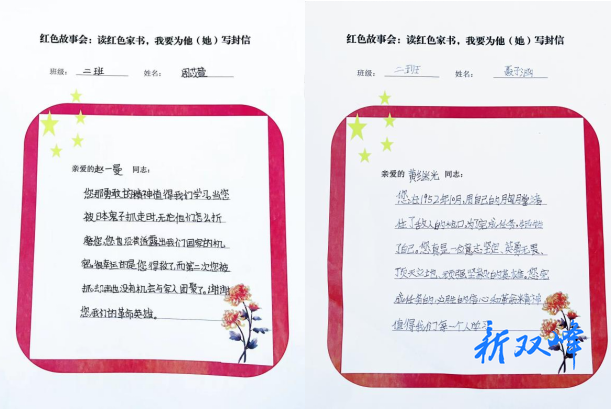 红色故事会：读红色家书，我要为他（她）写封信
班级： 二班 姓名：
亲爱的赵一曼 同志：
您那勇敢的精神值得我们学习。当您
被日本鬼子抓走时，无论他们怎么折
磨您，您也没有透露出我们国家的机
密。但幸运的是您得救了，而第二次您被
抓却再也没有机会与家人团聚了。谢谢
您，我们的革命英雄。
红色故事会：读红色家书，我要为他（她）写封信
班级： 二班 姓名：
亲爱的 黄继光 同志：
您，在1952年10月，用自己的胸膛堵
住了敌人的枪口，为了完成任务，牺牲
了自己。您真是一位意志坚定、英勇无畏、
顶天立地、的革命英雄。您完
成任务的、必胜的信心和革命精神
值得我们每一个人学习
新双峰